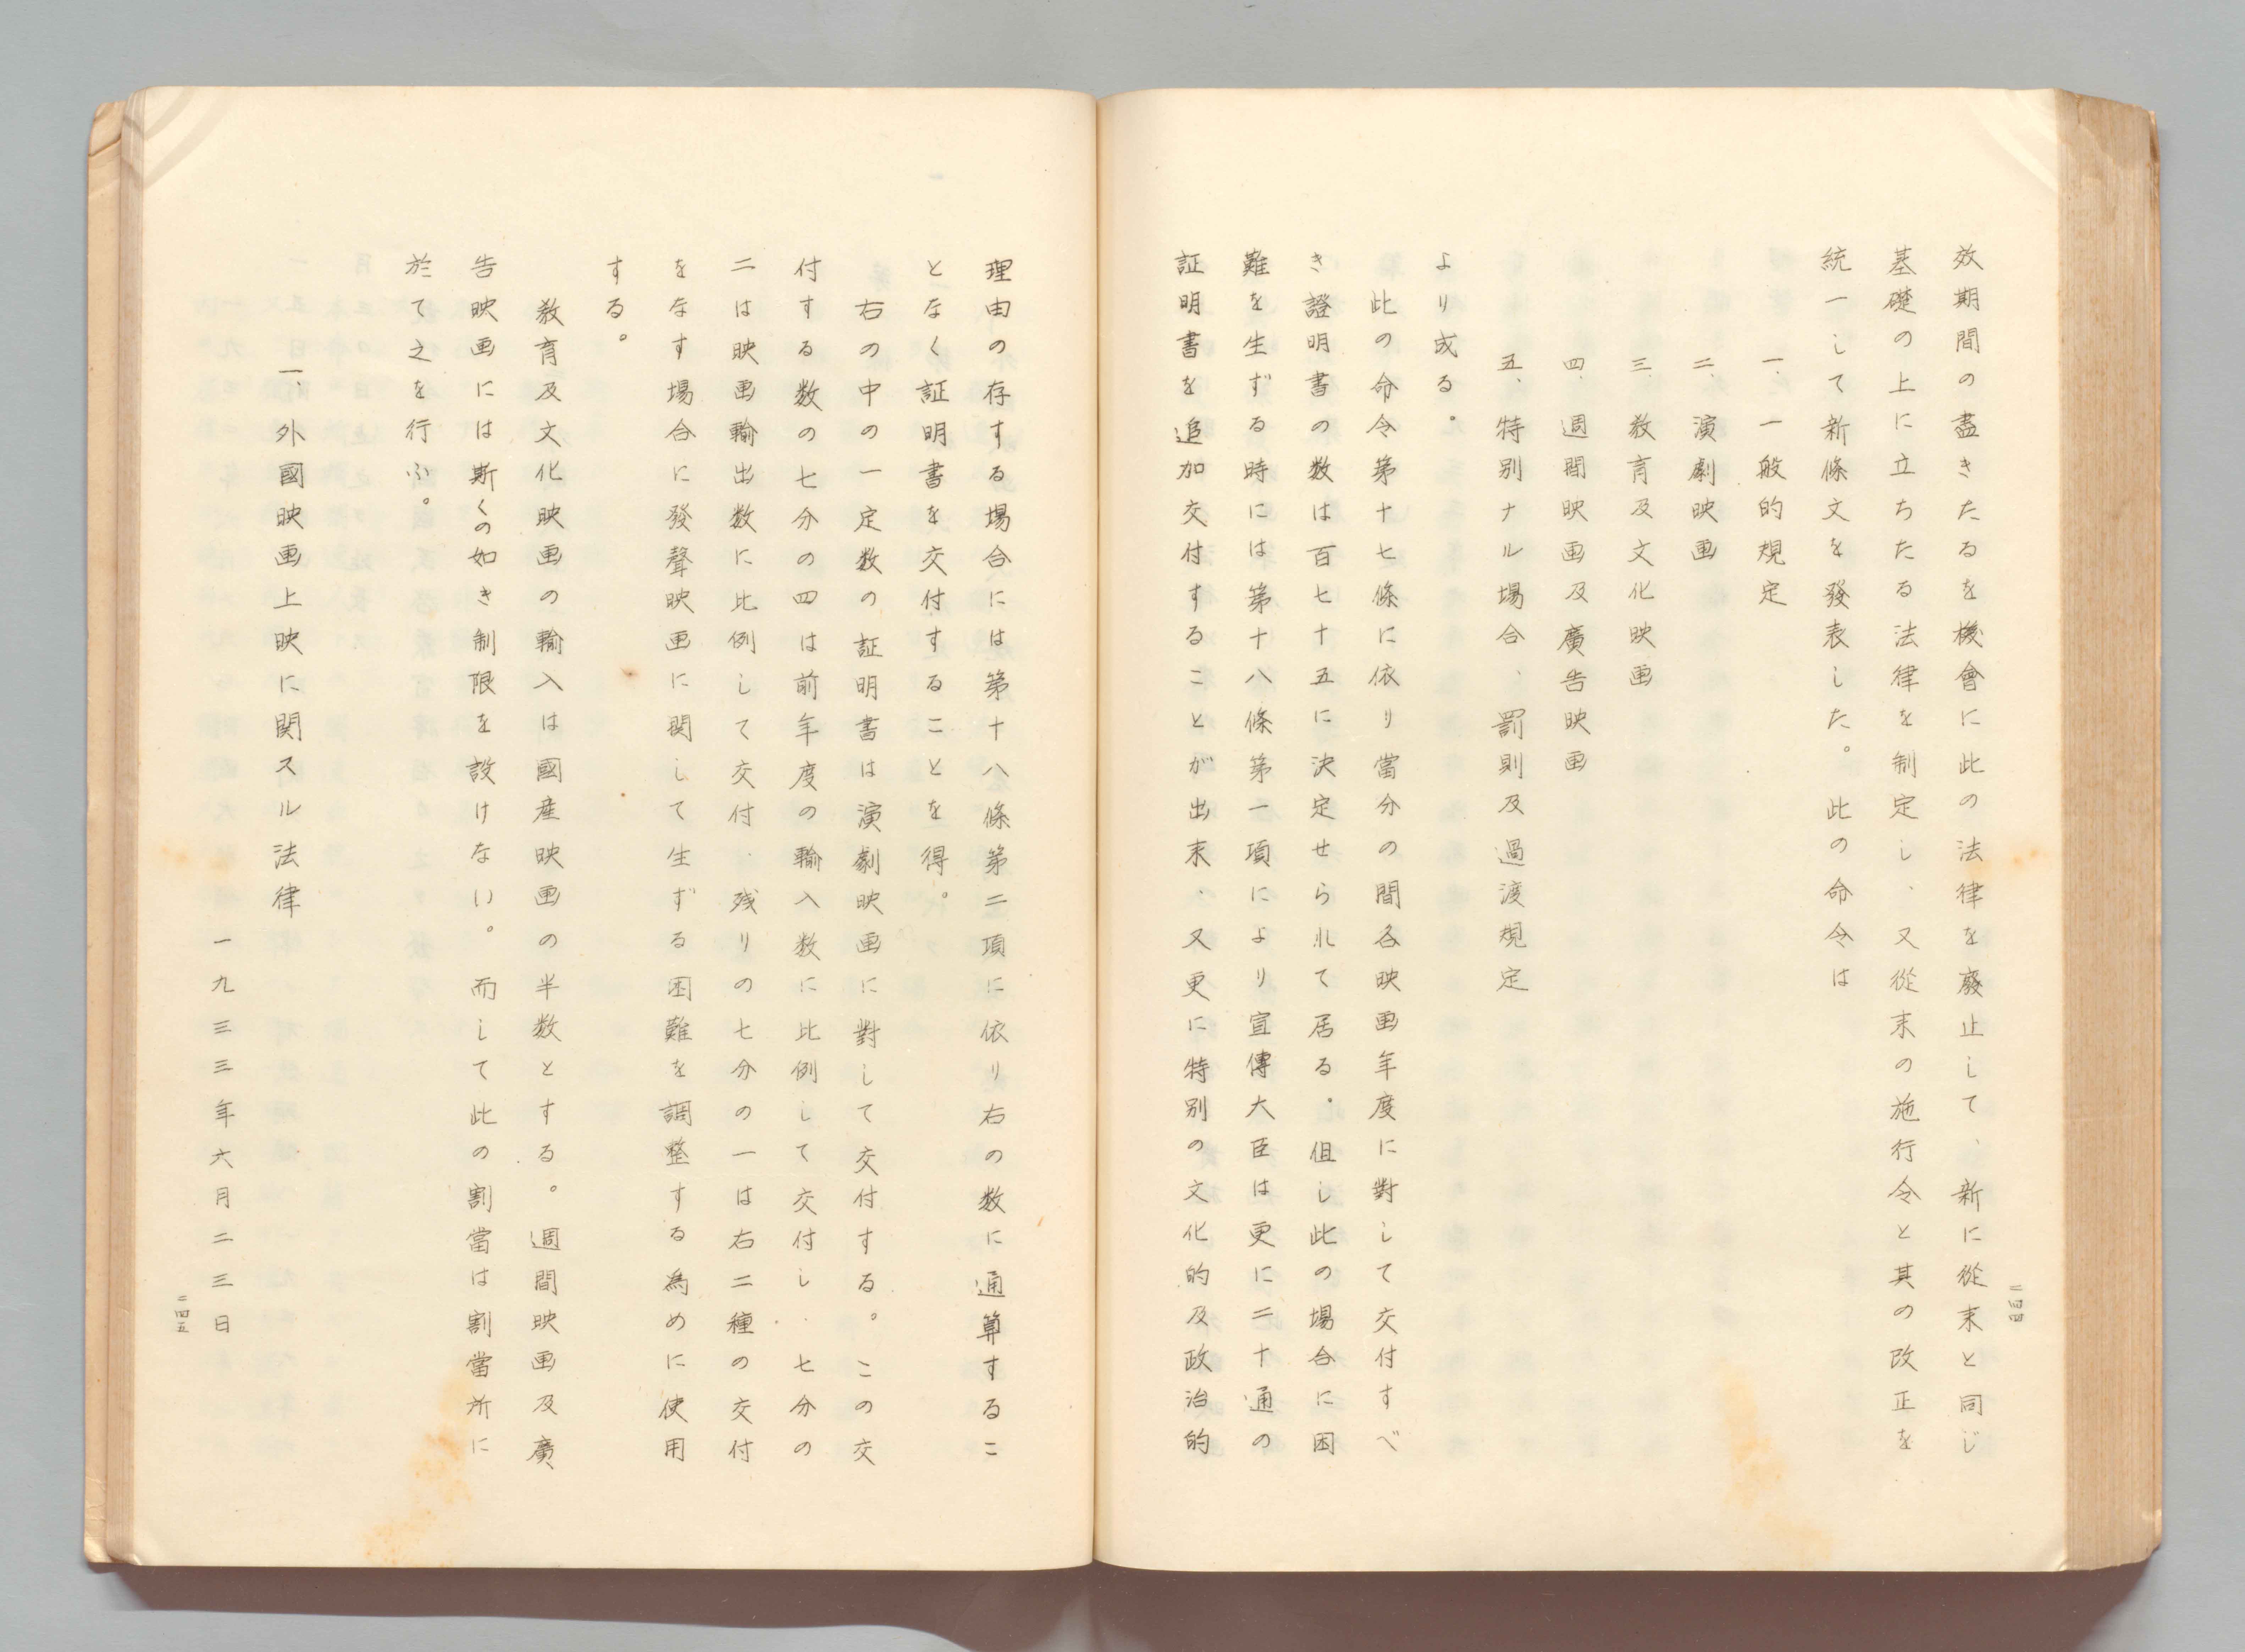 效期間の盡きたるを機會に此の法律を廢止して、新に從来と同じ
基礎の上に立ちたる法律を制定し、又從来の施行令と其の改正を
統一して新條文を發表した。此の命令は
一、一般的規定
二、演劇映画
三、教育及文化映画
四、週間映画及廣告映画
五、特別ナル場合、罰則及過渡規定
より成る。
此の命令第十七條に依り當分の間各映画年度に對して交付すべ
き證明書の数は百七十五に決定せられて居る。但し此の場合に困
難を生ずる時には第十八條第一項により宣傳大臣は更に二十通の
証明書を追加交付することが出来、又更に特別の文化的及政治的
二四四
理由の存する場合には第十八條第二項に依り右の数に通算するこ
となく証明書を交付することを得。
右の中の一定数の証明書は演劇映画に對して交付する。この交
付する数の七分の四は前年度の輸入数に比例して交付し、七分の
二は映画輸出数に比例して交付、残りの七分の一は右二種の交付
をなす場合に發聲映画に関して生ずる困難を調整する為めに使用
する。
教育及文化映画の輸入は國産映画の半数とする。週間映画及廣
告映画には斯くの如き制限を設けない。而して此の割當は割當所に
於て之を行ふ。
一、外國映画上映に関スル法律
一九三三年六月二三日
二四五